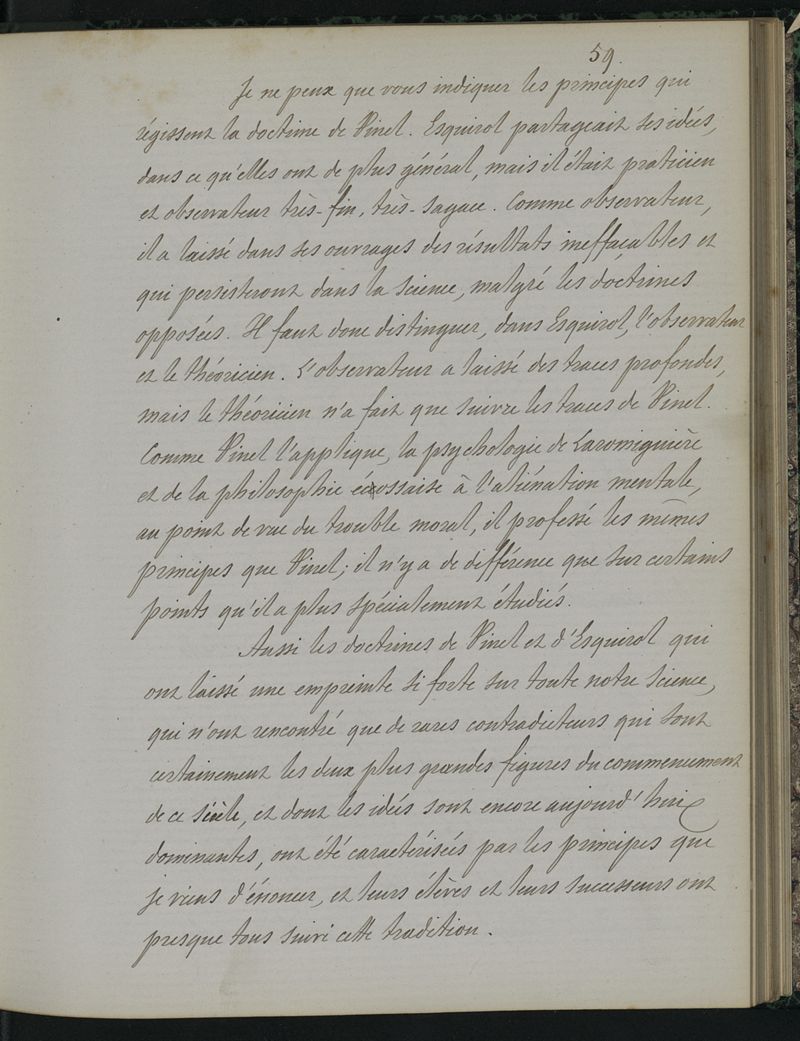 59.
Je ne peux que vous indiquer les principes qui
régissent la doctrine de Pinel. Esquirol partageait ses idées,
dans ce qu'elles ont de plus général, mais il était praticien
et observateur très-fin, très-sagace. Comme observateur,
il a laissé dans ses ouvrages des résultats ineffaçables et
qui persisteront dans la science, malgré les doctrines
opposées. Il faut donc distinguer, dans Esquirol, l'observateur
et le théoricien. L'observateur a laissé des traces profondes,
mais le théoricien n'a fait que suivre les traces de Pinel.
Comme Pinel l'applique, la psychologie de Laromiguière
et de la philosophie écossaise à l'aliénation mentale,
au point de vue du trouble moral, il professé les mêmes
principes que Pinel; il n'y a de différence que sur certains
points qu'il a plus spécialement étudiés.
Aussi les doctrines de Pinel et d'Esquirol qui
ont laissé une empreinte si forte sur toute notre science,
qui n'ont rencontré que de rares contradicteurs qui sont
certainement les deux plus grandes figures du commencement
de ce siècle, et dont les idées sont encore aujourd'hui
dominantes, ont été caractérisées par les principes que
je viens d'énoncer, et leurs élèves et leurs successeurs ont
presque tous suivi cette tradition.